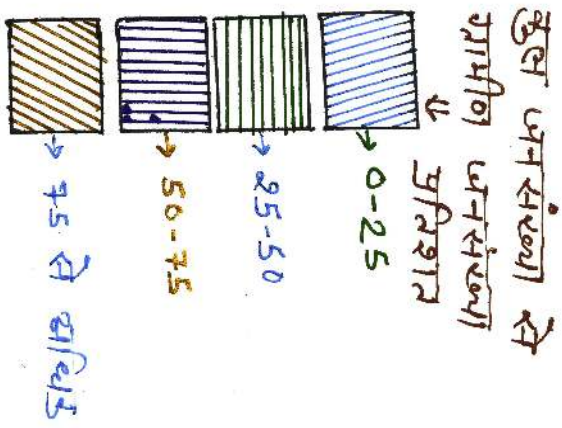 कुल जनसंख्या से
ग्रामीण जनसंख्या
⇓ प्रतिशत
→ 0-25
→ 25-50
→ 50-75
→ 75 से अधिक